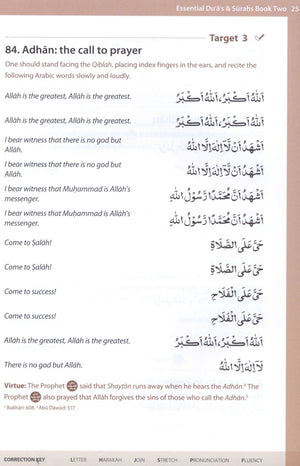 Essential Du'ā's & Sūrahs Book Two 25
Target 3
84. Adhān: the call to prayer
One should stand facing the Qiblah, placing index fingers in the ears, and recite the
following Arabic words slowly and loudly.
Allāh is the greatest, Allāh is the greatest. اَللهُ اَكْبَرُ، اَللهُ اَكْبَرُ
Allāh is the greatest, Allāh is the greatest. اَللهُ اَكْبَرُ، اَللهُ اَكْبَرُ
I bear witness that there is no god but
Allāh. اَشْهَدُ اَنْ لَّآ اِلٰهَ اِلَّا اللهُ
I bear witness that there is no god but
Allāh. اَشْهَدُ اَنْ لَّآ اِلٰهَ اِلَّا اللهُ
I bear witness that Muḥammad is Allāh's
messenger. اَشْهَدُ اَنَّ مُحَمَّدًا رَّسُوْلُ اللهِ
I bear witness that Muḥammad is Allāh's
messenger. اَشْهَدُ اَنَّ مُحَمَّدًا رَّسُوْلُ اللهِ
Come to Ṣalāh! حَيَّ عَلَى الصَّلَاةِ
Come to Ṣalāh! حَيَّ عَلَى الصَّلَاةِ
Come to success! حَيَّ عَلَى الْفَلَاحِ
Come to success! حَيَّ عَلَى الْفَلَاحِ
Allāh is the greatest, Allāh is the greatest. اَللهُ اَكْبَرُ، اَللهُ اَكْبَرُ
There is no god but Allāh. لَآ اِلٰهَ اِلَّا اللهُ
Virtue: The Prophet said that Shayṭān runs away when he hears the Adhān.ᵃ The
Prophet also prayed that Allāh forgives the sins of those who call the Adhān.ᵇ
ᵃ Bukhārī: 608. ᵇ Abū Dāwūd: 517.
CORRECTION KEY LETTER HARAKAH JOIN STRETCH PRONUNCIATION FLUENCY